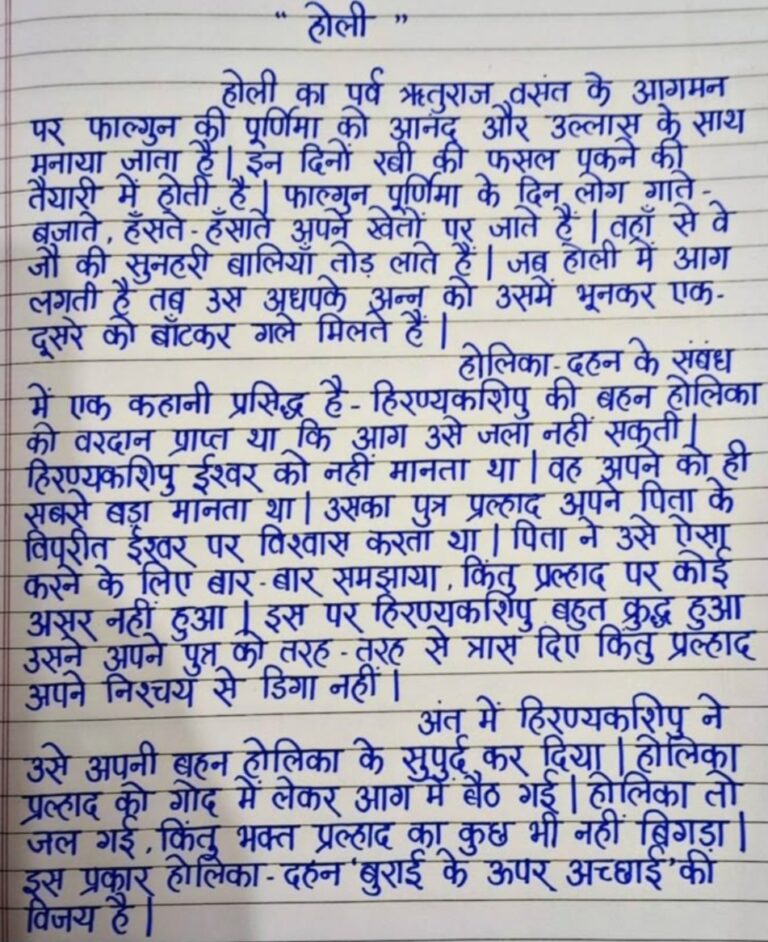 “ होली ”
होली का पर्व ऋतुराज वसंत के आगमन
पर फाल्गुन की पूर्णिमा को आनंद और उल्लास के साथ
मनाया जाता है | इन दिनों रबी की फसल पकने की
तैयारी में होती है | फाल्गुन पूर्णिमा के दिन लोग गाते -
बजाते, हँसते - हँसाते अपने खेतों पर जाते हैं | वहाँ से वे
जौ की सुनहरी बालियाँ तोड़ लाते हैं | जब होली में आग
लगती है तब उस अधपके अन्न को उसमें भूनकर एक-
दूसरे को बाँटकर गले मिलते हैं |
होलिका-दहन के संबंध
में एक कहानी प्रसिद्ध है - हिरण्यकशिपु की बहन होलिका
को वरदान प्राप्त था कि आग उसे जला नहीं सकती |
हिरण्यकशिपु ईश्वर को नहीं मानता था | वह अपने को ही
सबसे बड़ा मानता था | उसका पुत्र प्रल्हाद अपने पिता के
विपरीत ईश्वर पर विश्वास करता था | पिता ने उसे ऐसा
करने के लिए बार-बार समझाया, किंतु प्रल्हाद पर कोई
असर नहीं हुआ | इस पर हिरण्यकशिपु बहुत क्रुद्ध हुआ
उसने अपने पुत्र को तरह-तरह से त्रास दिए किंतु प्रल्हाद
अपने निश्चय से डिगा नहीं |
अंत में हिरण्यकशिपु ने
उसे अपनी बहन होलिका के सुपुर्द कर दिया | होलिका
प्रल्हाद को गोद में लेकर आग में बैठ गई | होलिका तो
जल गई, किंतु भक्त प्रल्हाद का कुछ भी नहीं बिगड़ा |
इस प्रकार होलिका-दहन 'बुराई के ऊपर अच्छाई' की
विजय है |